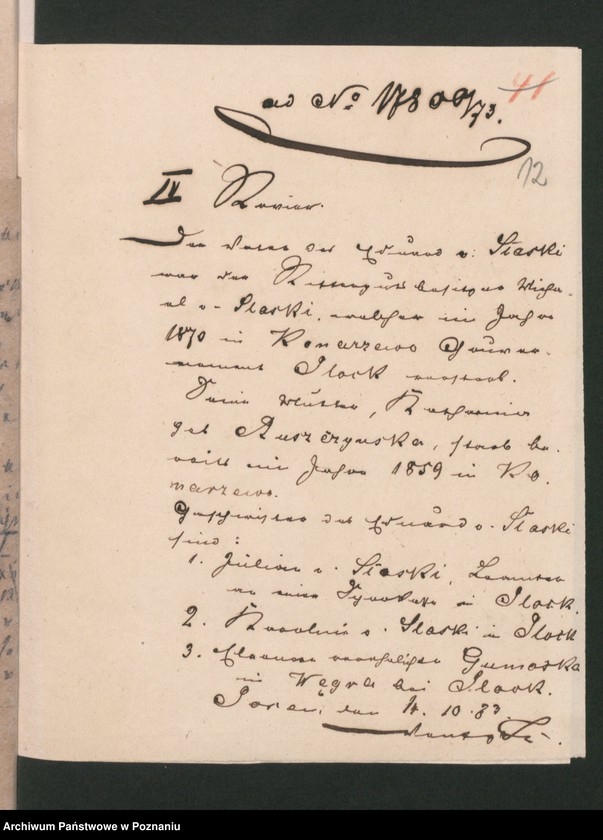 ad No 17809/73.
11
12
IV Revier.
Der Vater des Eduard v. Slaski
war der Rittergutsbesitzer Micha-
el v. Slaski, welcher im Jahre
1870 in Konarzewo Gouver-
nement Plock verstarb.
Seine Mutter, Katharina
geb Ruszczynska, starb be-
reits im Jahre 1859 in Ko-
narzewo.
Geschwister des Eduard v. Slaski
sind:
1. Julian v. Slaski, Beamter
an einer in Plock.
2. Karoline v. Slaski in Plock
3. Eleonore verehelichte Gumoska
in Węgra bei Plock.
Posen, den 4. 10. 83
Archiwum Państwowe w Poznaniu